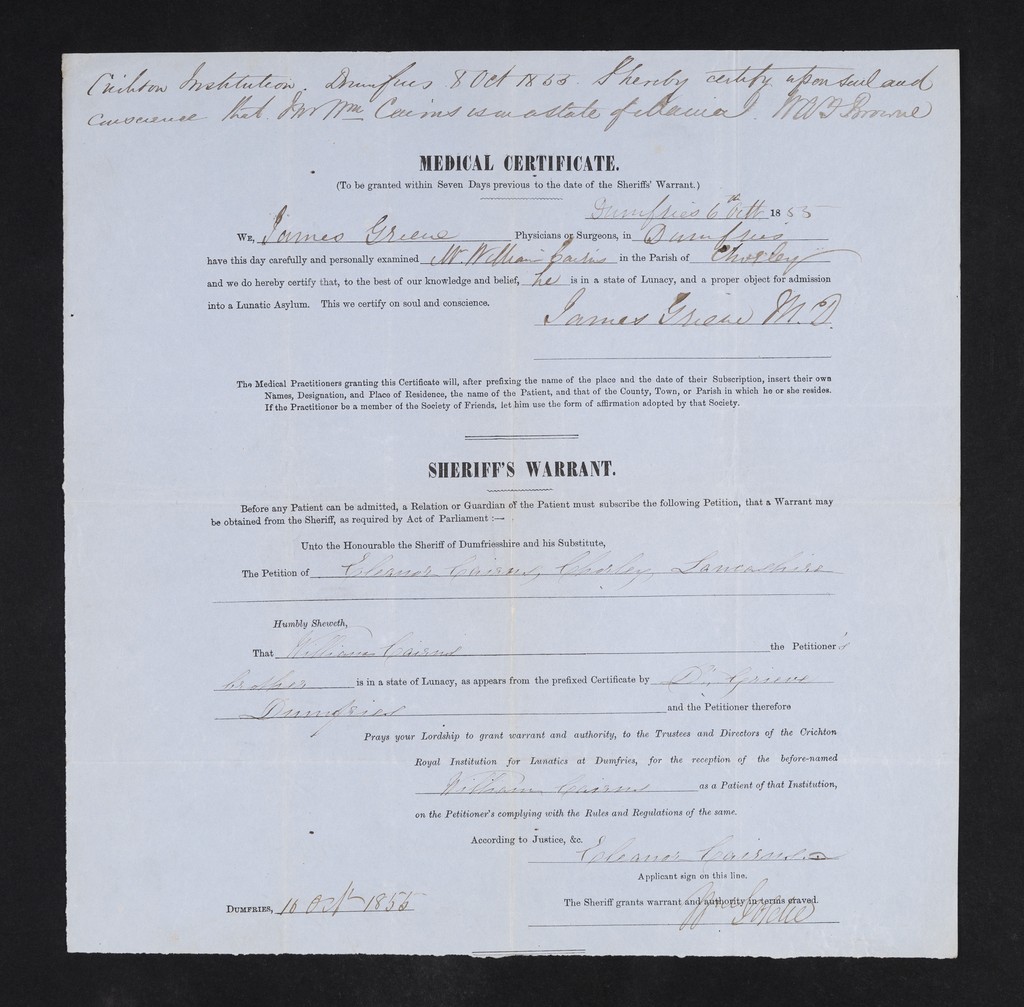 Crichton Institution. Dumfries 8 Oct 1855 I hereby certify upon soul and
conscience that Mr Wm Cairns is in a state of Mania. W A F Browne
MEDICAL CERTIFICATE.
(To be granted within Seven Days previous to the date of the Sheriffs' Warrant.)
Dumfries 6th Octr 1855
WE, James Grieve Physicians or Surgeons, in Dumfries
have this day carefully and personally examined Mr William Cairns in the Parish of Chorley
and we do hereby certify that, to the best of our knowledge and belief, he is in a state of Lunacy, and a proper object for admission
into a Lunatic Asylum. This we certify on soul and conscience.
James Grieve M.D.
The Medical Practitioners granting this Certificate will, after prefixing the name of the place and the date of their Subscription, insert their own
Names, Designation, and Place of Residence, the name of the Patient, and that of the County, Town, or Parish in which he or she resides.
If the Practitioner be a member of the Society of Friends, let him use the form of affirmation adopted by that Society.
SHERIFF'S WARRANT.
Before any Patient can be admitted, a Relation or Guardian of the Patient must subscribe the following Petition, that a Warrant may
be obtained from the Sheriff, as required by Act of Parliament :—
Unto the Honourable the Sheriff of Dumfriesshire and his Substitute,
The Petition of Eleanor Cairns, Chorley, Lancashire
Humbly Sheweth,
That William Cairns the Petitioner's
brother is in a state of Lunacy, as appears from the prefixed Certificate by Dr. Grieve
Dumfries and the Petitioner therefore
Prays your Lordship to grant warrant and authority, to the Trustees and Directors of the Crichton
Royal Institution for Lunatics at Dumfries, for the reception of the before-named
William Cairns as a Patient of that Institution,
on the Petitioner's complying with the Rules and Regulations of the same.
According to Justice, &c.
Eleanor Cairns
Applicant sign on this line.
DUMFRIES, 10 Octr 1855
The Sheriff grants warrant and authority in terms craved.